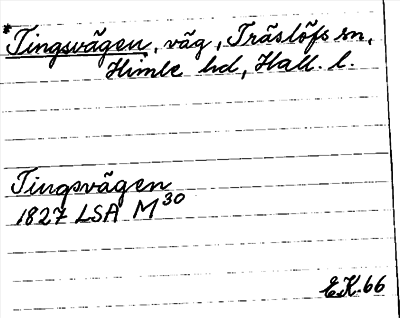 *Tingsvägen, väg, Träslöfs sn,
Himle hd, Hall. l.
Tingsvägen
1827 LSA M30
EK.66